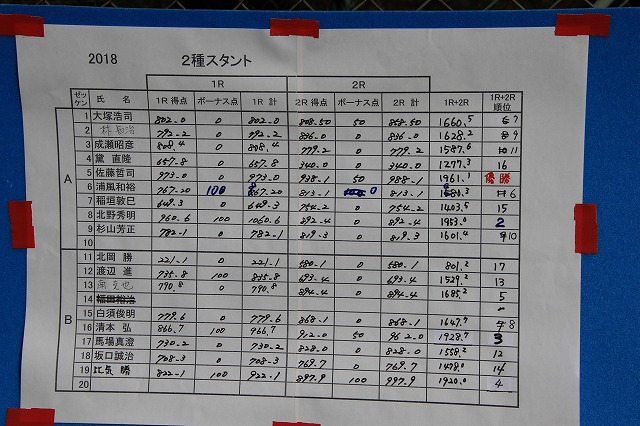 2018 2種スタント
1R 2R
ゼッケン 氏 名 1R 得点 ボーナス点 1R 計 2R 得点 ボーナス点 2R 計 1R+2R 1R+2R 順位
A
1 大塚浩司 802.0 0 802.0 808.50 50 858.50 1660.5 7
2 792.2 0 792.2 836.0 0 836.0 1628.2 9
3 成瀬昭彦 808.4 0 808.4 779.2 0 779.2 1587.6 11
4 黛 直隆 657.8 0 657.8 340.0 0 340.0 1277.3 16
5 佐藤哲司 973.0 0 973.0 938.1 50 988.1 1961.1 優勝
6 浦風和裕 767.20 100 867.20 813.1 0 813.1 1680.3 6
7 稲垣敦巳 649.3 0 649.3 754.2 0 754.2 1403.5 15
8 北野秀明 960.6 100 1060.6 892.4 0 892.4 1953.0 2
9 杉山芳正 782.1 0 782.1 819.3 0 819.3 1601.4 10
10
B
11 北岡 勝 221.1 0 221.1 580.1 0 580.1 801.2 17
12 渡辺 進 735.8 100 835.8 693.4 0 693.4 1529.2 13
13 790.8 0 790.8 894.4 0 894.4 1685.2 5
14 福田裕治
15 白須俊明 779.6 0 779.6 868.1 0 868.1 1647.7 8
16 清本 弘 866.7 100 966.7 912.0 50 962.0 1928.7 3
17 馬場真澄 730.2 0 730.2 828.0 0 828.0 1558.2 12
18 坂口誠治 708.3 0 708.3 769.7 0 769.7 1478.0 14
19 比気 勝 822.1 100 922.1 897.9 100 997.9 1920.0 4
20